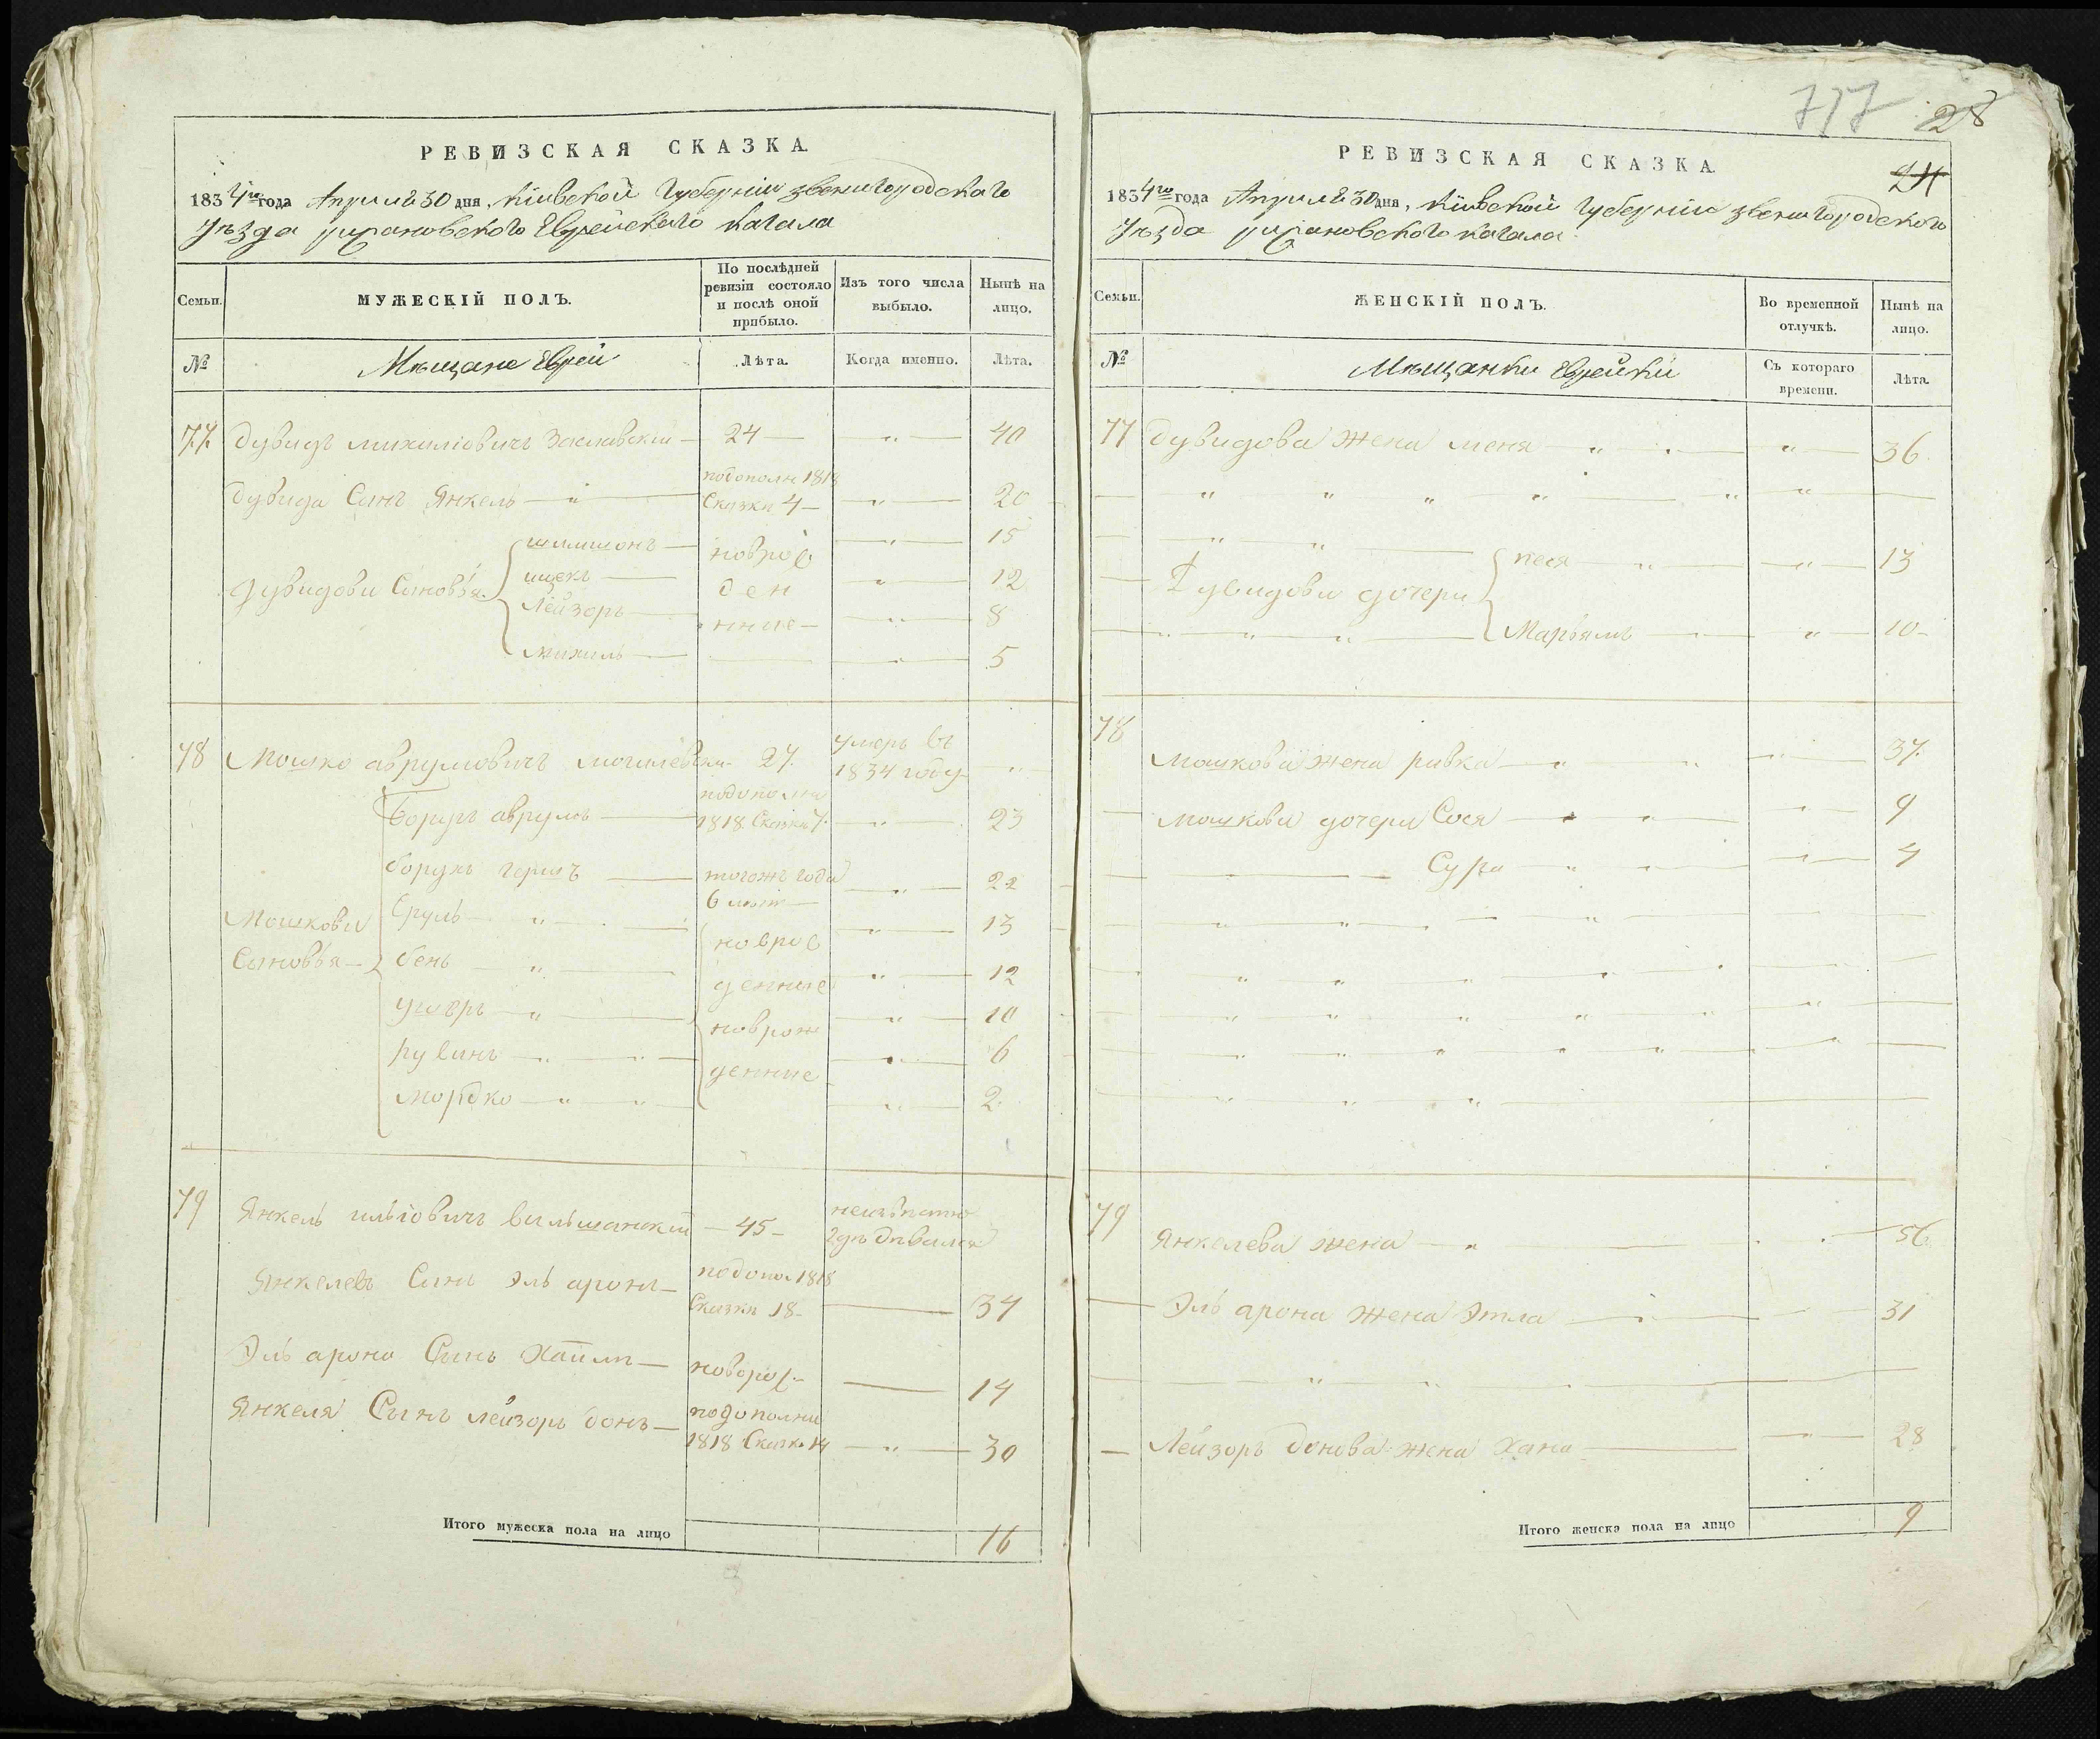 РЕВИЗСКАЯ СКАЗКА.
1834го года Апреля 30 дня, Кіевской Губерніи Звенигородского
Уезда Еврейского Кагала
Семьи.
МУЖЕСКІЙ ПОЛЪ.
По послѣдней ревизіи состояло и послѣ оной прибыло.
Изъ того числа выбыло.
Нынѣ на лицо.
№
Мещане Евреи
Лѣта.
Когда именно.
Лѣта.
77 Дувидъ Михилювичъ Заславский — 24 — " — 40
подополн 1818
Дувида Сынъ Янкель — " — Сказки 4 — " — 20
шимшонъ — новрож — " — 15
Дувидови Сыновья
ицекъ — ден — " — 12
Лейзоръ — нние — " — 8
михиль — — " — 5
умеръ въ
78 Мошко аврумовичъ могилевски — 27. 1834 году — "
подополни
борухъ аврумъ — 1818 Сказки 7. — " — 23
борухъ гершъ — тогожъ года — " — 22
6 летъ —
Мошкови
Сыновья —
Сруль — " — 13
новрож
бень — " — денние — " — 12
Ушеръ — " — — " — 10
новрож
рувинъ — " — " — " — 6
денние
мордко — " — " — " — 2
79 Янкель ильiовичъ вильшанский — 45 — неизвестно
где девался
подопол 1818
Янкелевъ Сынъ Эль аронъ — Сказки 18 — — 34
Эль арона Сынъ Хаимъ — новорож — — 14
Янкеля Сынъ лейзоръ бонъ — подополни
1818 Сказк 14 — " — 30
Итого мужеска пола на лицо
16
717 28
24
РЕВИЗСКАЯ СКАЗКА.
1834го года Апреля 30 дня, Кіевской Губерніи Звенигородского
Уезда Кагала
Семьи.
ЖЕНСКІЙ ПОЛЪ.
Во временной отлучкѣ.
Нынѣ на лицо.
№
Мещанки Еврейки
Съ котораго времени.
Лѣта.
77 Дувидова жена меня — " — " — 36
песя — " — " — 13
Дувидови дочери
Марьямъ — " — " — 10
78
Мошкова жена ривка — " — " — 37.
Мошкови дочери Сося — " — " — 9
Сура — " — " — 4
79
Янкелева жена — " — 56
Эль арона жена Этла — 31
Лейзоръ бонова жена Хана — 28
Итого женска пола на лицо
9